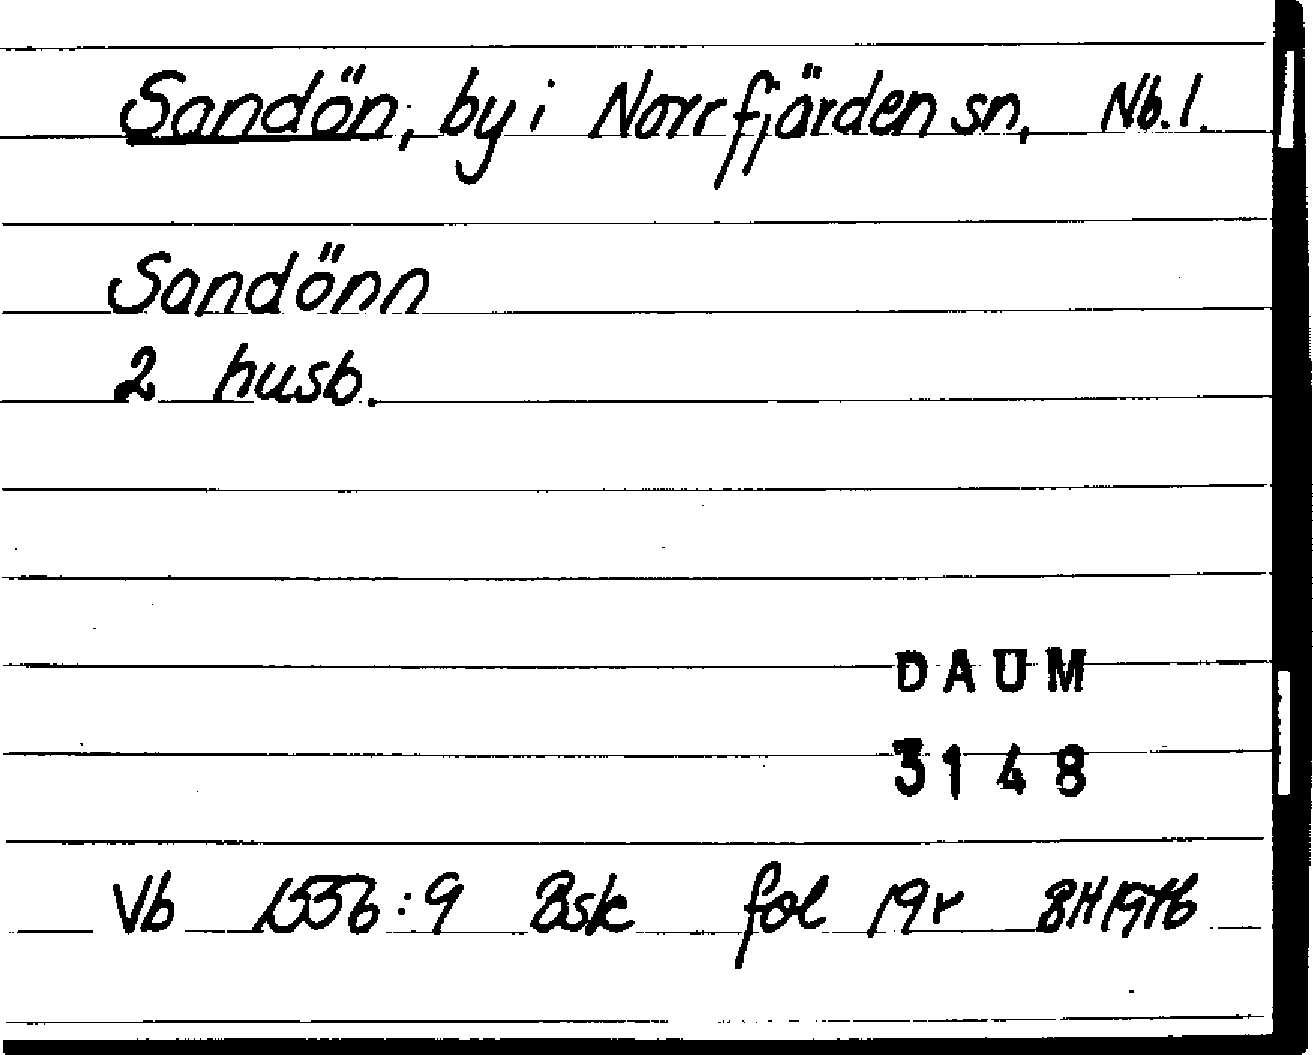 Sandön, by i Norrfjärden sn, Nb.l.
Sandönn
2 husb.
DAUM
3148
Vb 1556:9 Bsk fol 19r BH1976